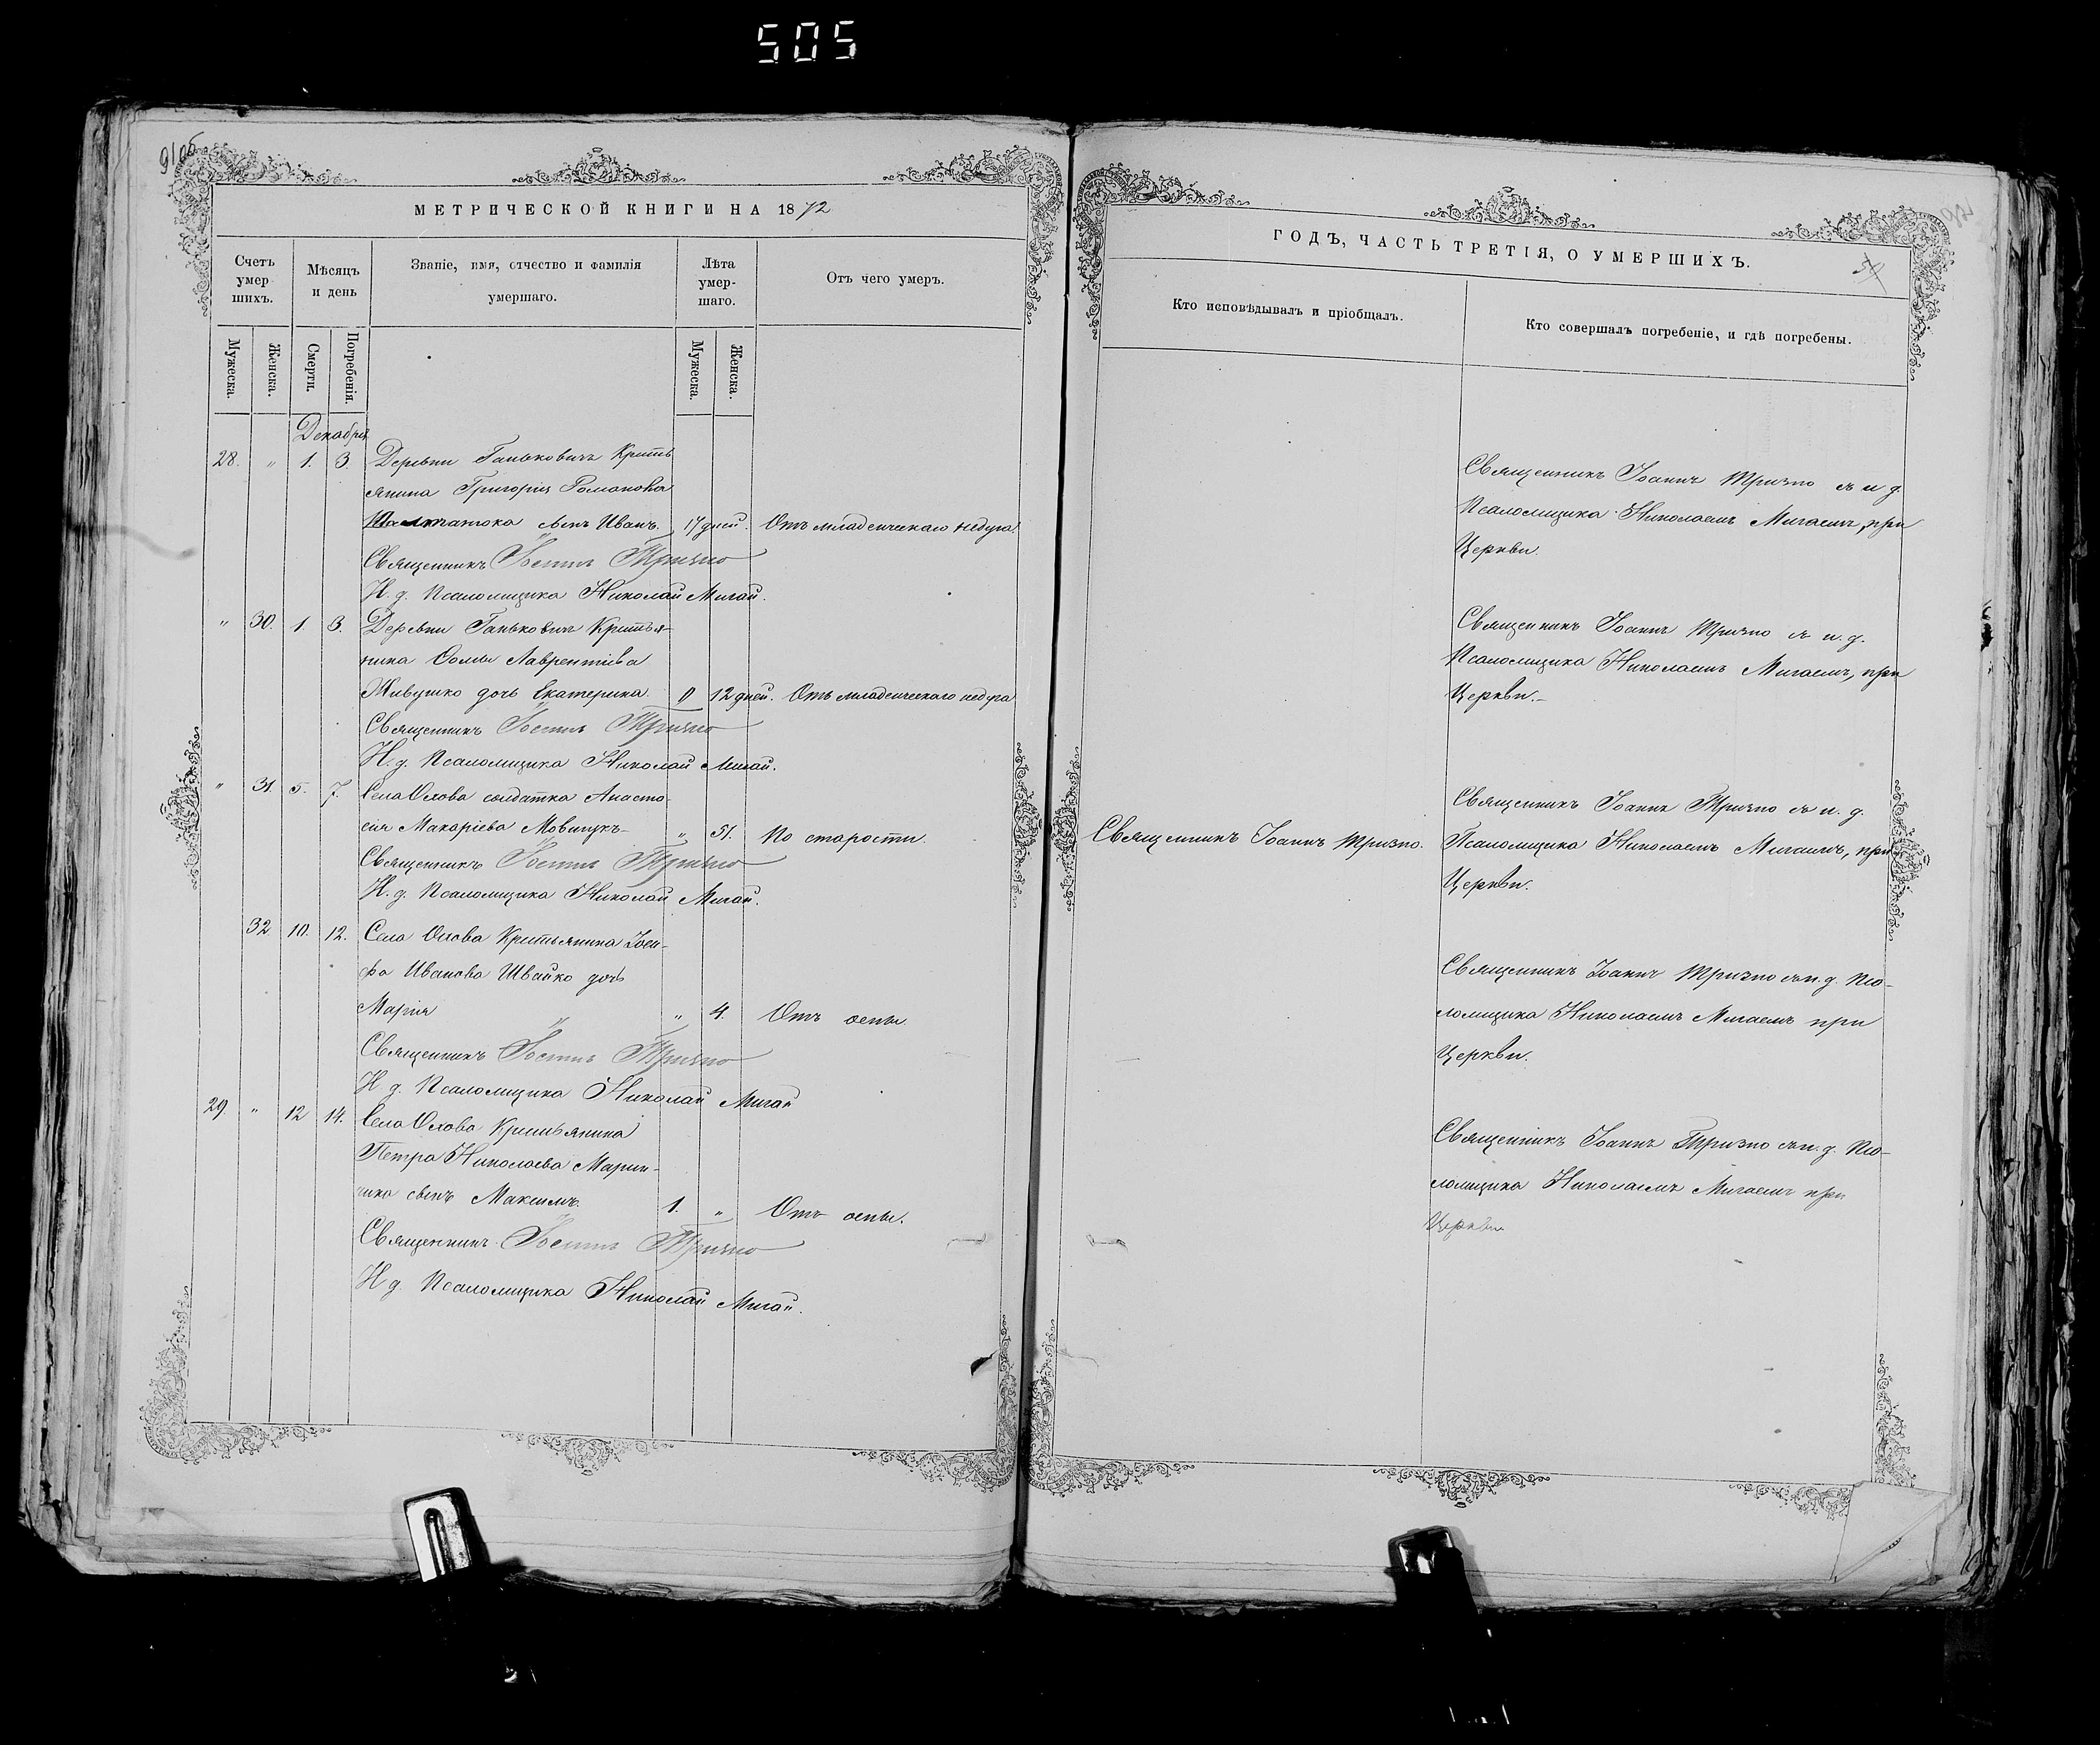 505
МЕТРИЧЕСКОЙ КНИГИ НА 1872
Счетъ умер шихъ.
Мѣсяцъ и день
Званіе, имя, отчество и фамилія умершаго.
Лѣта умер- шаго.
Отъ чего умеръ.
Мужеска.
Женска.
Смерти.
Погребенія.
Мужеска.
Женска.
Декабря
28. " 1. 3. Деревни Ганьковичъ Кресть
янина Григорія Романова
сынъ Иванъ. 17 дней. Отъ младенческаго недуга.
Священникъ Іоаннъ Тризно
И. д. Псаломщика Николай Мигай.
" 30. 1. 3. Деревни Ганьковичъ Крестья-
нина Ѳомы Лаврентіева
Живушко дочь Екатерина. " 12 дней. Отъ младенческаго недуга
Священникъ Іоаннъ Тризно
И. д. Псаломщика Николай Мигай.
" 31. 5. 7. Села Охова солдатка Анаста-
сія Макаріева Мовчукъ- " 51. По старости.
Священникъ Іоаннъ Тризно
И. д. Псаломщика Николай Мигай.
32 10. 12. Села Охова Крестьянина Іоси-
фа Иванова Швайко дочь
Марія " 4. Отъ оспы.
Священникъ Іоаннъ Тризно
И. д. Псаломщика Николай Мигай
29. " 12 14. Села Охова Крестьянина
Петра Николаева Марин-
чика сынъ Максимъ. 1. " Отъ оспы.
Священникъ Іоаннъ Тризно
И. д. Псаломщика Николай Мигай.
ГОДЪ, ЧАСТЬ ТРЕТІЯ, О УМЕРШИХЪ.
Кто исповѣдывалъ и пріобщалъ.
Кто совершалъ погребеніе, и гдѣ погребены.
Священникъ Іоаннъ Тризно съ и д.
Псаломщика Николаемъ Мигаемъ, при
Церкви.
Священникъ Іоаннъ Тризно съ и. д.
Псаломщика Николаемъ Мигаемъ, при
Церкви.-
Священникъ Іоаннъ Тризно.
Священникъ Іоаннъ Тризно съ и. д.
Псаломщика Николаемъ Мигаемъ, при
Церкви.
Священникъ Іоаннъ Тризно съ и. д. Пса-
ломщика Николаемъ Мигаемъ при
Церкви.
Священникъ Іоаннъ Тризно съ и. д. Пса-
ломщика Николаемъ Мигаемъ при
Церкви